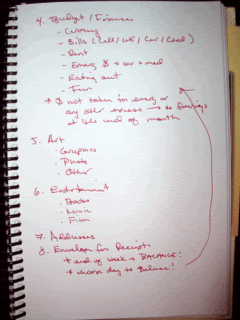 4. Budget / Finances
- Grocery
- Bills (Cell / WF / Car / Cred)
- Rent
- Emerg $ → car + med
- Eating out
- Fun
* $ not taken for emerg or
any other expense → to Savings
at the end of month
5. Art
- Graphics
- Photo
- Other
6. Entertainment
- Books
- Music
- Film
7. Addresses
8. Envelope for Receipts
* end of week → BALANCE!
* choose day to Balance!